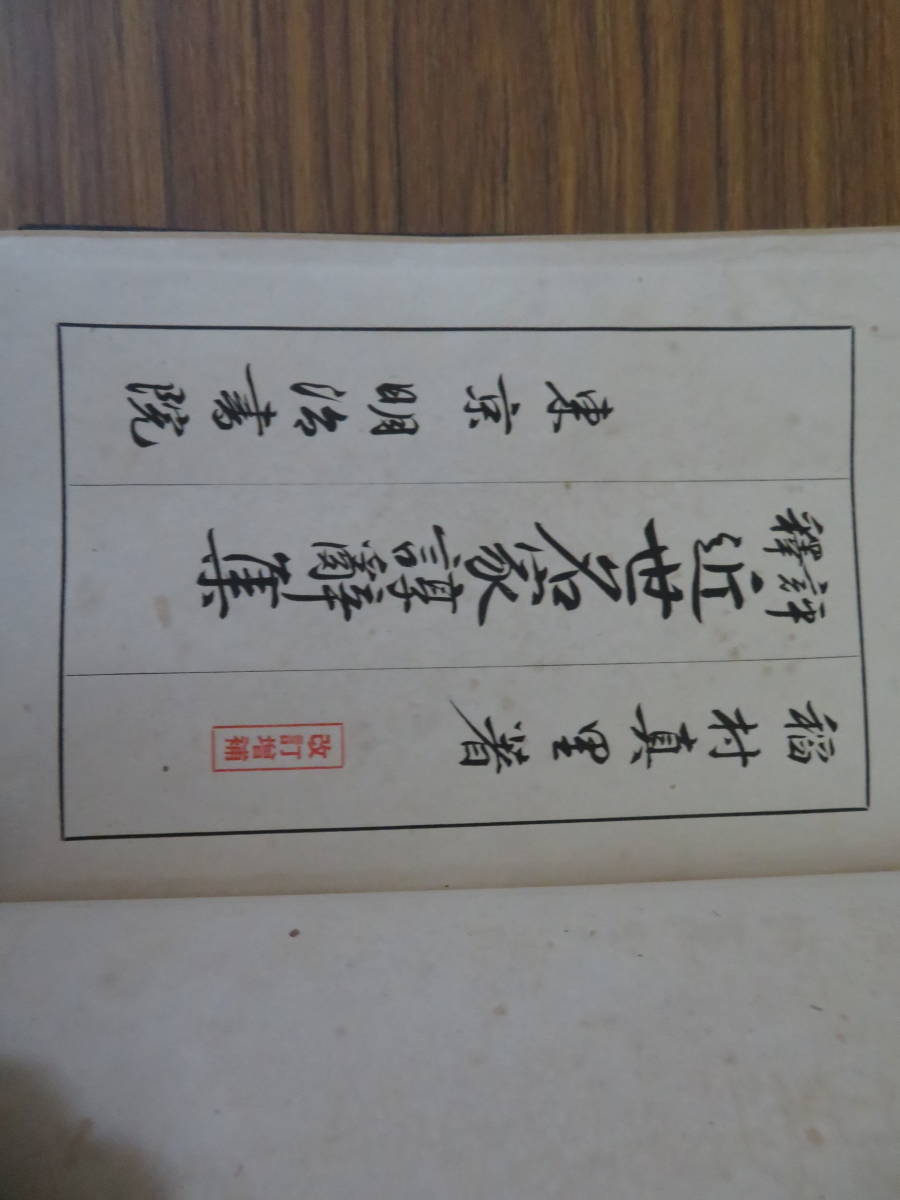 稲村真里著
改訂
增補
評釋
近世名家諄辭集
東京 明治書院